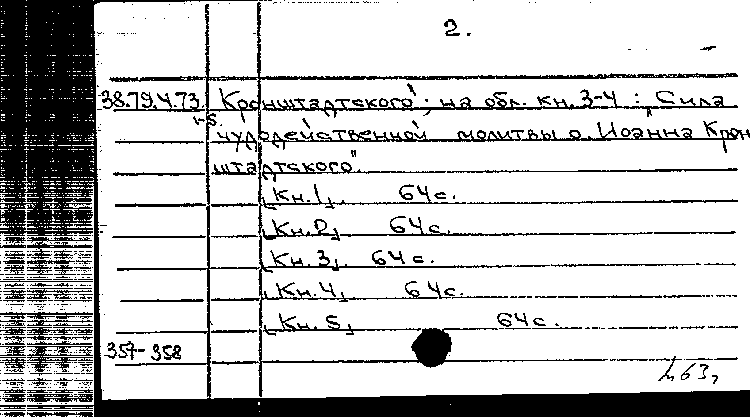 2.
38.79.4.73. Кронштадтского"; на обл. кн. 3-4: "Сила
1-5.
чудодейственной молитвы о. Иоанна Крон
штадтского".
[Кн. 1] 64 с.
[Кн. 2] 64 с.
[Кн. 3] 64 с.
[Кн. 4] 64 с.
[Кн. 5] 64 с.
357-358